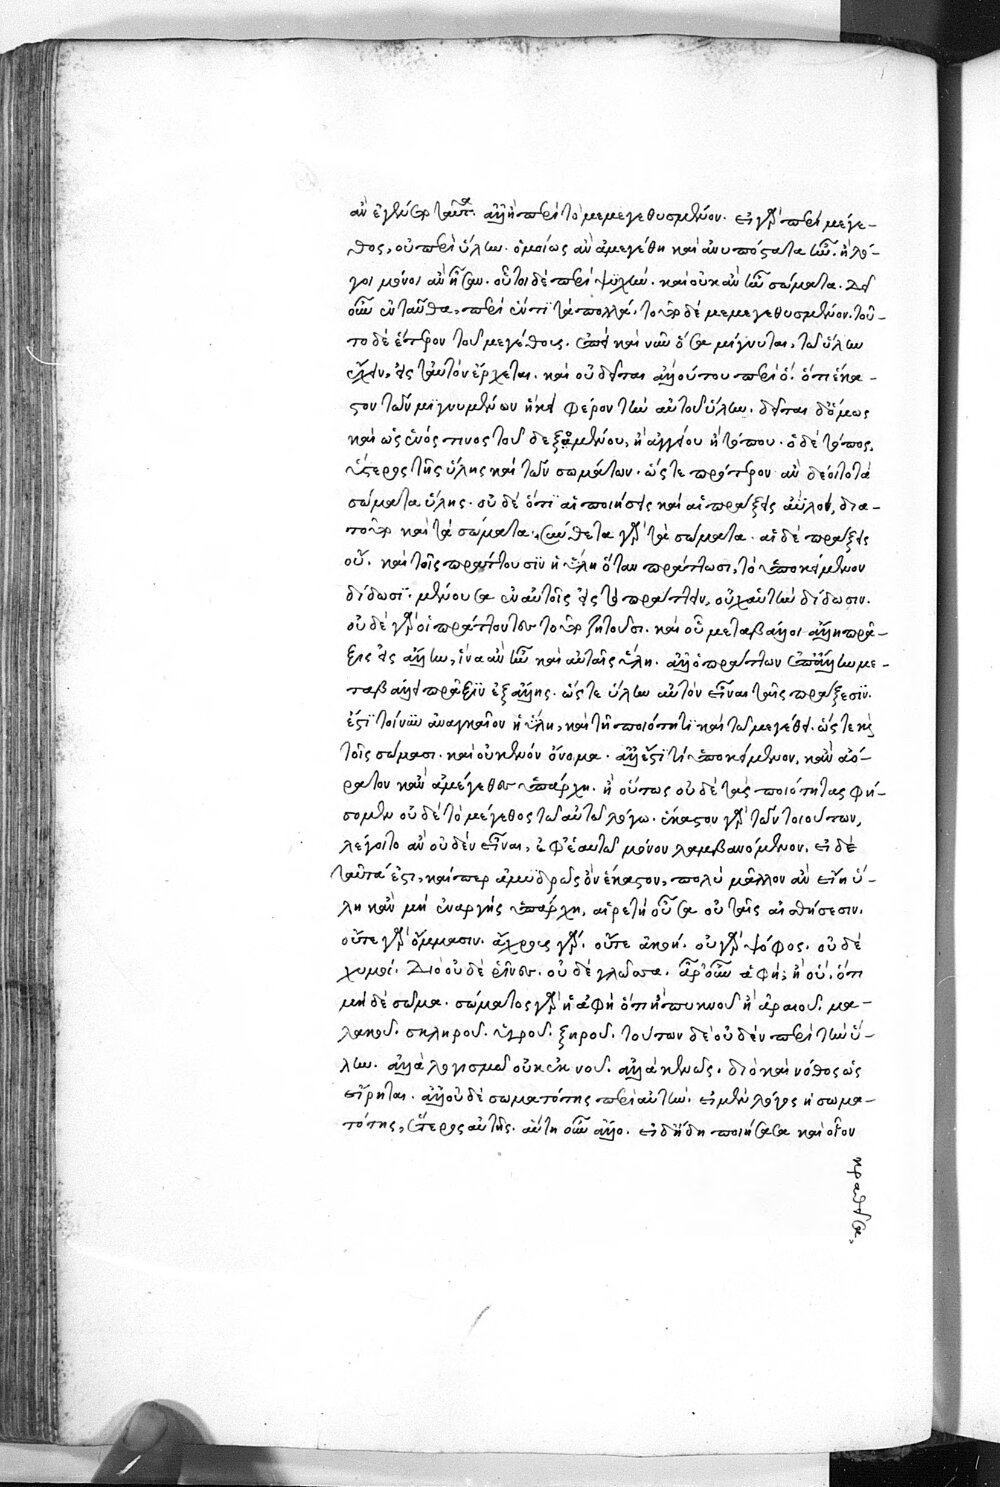 ἂν ἐγένετο ταῦτα. ἀλλ' ἢ περὶ τὸ μεμεγεθυσμένον. εἰ γὰρ περὶ μέγε-
θος, οὐ περὶ ὕλην. ὁμοίως ἂν ἀμεγέθη καὶ ἀνυπόστατα ἦν. ἢ λό-
γοι μόνοι ἂν ἦσαν. οὗτοι δὲ περὶ ψυχήν. καὶ οὐκ ἂν ἦν σώματα. δεῖ
οὖν ἐνταῦθα, περὶ ἕν τι τὰ πολλά. τοῦτο δὲ μεμεγεθυσμένον. τοῦ-
το δὲ ἕτερον τοῦ μεγέθους. ἐπεὶ καὶ νῦν ὅσα μίγνυται, τῷ ὕλην
ἔχειν, εἰς ταὐτὸν ἔρχεται. καὶ οὐ δεῖται ἄλλου του περὶ ὅ. ὅτι ἕκα-
στον τῶν μιγνυμένων ἥκει φέρον τὴν αὐτοῦ ὕλην. δεῖται δ' ὅμως
καὶ ὡς ἑνός τινος τοῦ δεξαμένου, ἢ ἀγγείου ἢ τόπου. ὁ δὲ τόπος,
ὕστερος τῆς ὕλης καὶ τῶν σωμάτων. ὥστε πρότερον ἂν δέοιτο τὰ
σώματα ὕλης. οὐδὲ ὅτι αἱ ποιήσεις καὶ αἱ πράξεις ἄϋλοι, δια-
τοῦτο καὶ τὰ σώματα. σύνθετα γὰρ τὰ σώματα. αἱ δὲ πράξεις
οὔ. καὶ τοῖς πράττουσιν ἡ ὕλη ὅταν πράττωσι, τὸ ὑποκείμενον
δίδωσι. μένουσα ἐν αὐτοῖς εἰς τὸ πράττειν, οὐχ αὑτὴν δίδωσιν.
οὐδὲ γὰρ οἱ πράττοντες τοῦτο ζητοῦσι. καὶ οὐ μεταβάλλοι ἄλλη πρᾶ-
ξις εἰς ἄλλην, ἵνα ἂν ἦν καὶ αὐταῖς ὕλη. ἀλλ' ὁ πράττων ἐπ' ἄλλην με-
ταβάλλει πρᾶξιν ἐξ ἄλλης. ὥστε ὕλην αὐτὸν εἶναι ταῖς πράξεσιν.
ἔστι τοίνυν ἀναγκαῖον ἡ ὕλη, καὶ τῇ ποιότητι καὶ τῷ μεγέθει. ὥστε καὶ
τοῖς σώμασι. καὶ οὐ κενὸν ὄνομα. ἀλλ' ἔστι τι ὑποκείμενον, κἂν ἀό-
ρατον κἂν ἀμέγεθες ὑπάρχῃ. ἢ οὕτως οὐδὲ τὰς ποιότητας φή-
σομεν οὐδὲ τὸ μέγεθος τῷ αὐτῷ λόγῳ. ἕκαστον γὰρ τῶν τοιούτων,
λέγοιτο ἂν οὐδὲν εἶναι, ἐφ' ἑαυτοῦ μόνον λαμβανόμενον. εἰ δὲ
ταῦτά ἐστι, καίπερ ἀμυδρῶς ὂν ἕκαστον, πολὺ μᾶλλον ἂν εἴη ὕ-
λη κἂν μὴ ἐναργὴς ὑπάρχῃ, αἱρετὴ οὖσα οὐ ταῖς αἰσθήσεσιν.
οὔτε γὰρ ὄμμασιν. ἄχρους γάρ. οὔτε ἀκοῇ. οὐ γὰρ ψόφος. οὐδὲ
χυμοί. διὸ οὐδὲ ῥῖνες. οὐδὲ γλῶσσα. ἆρ' οὖν ἁφῇ; ἢ οὔ. ὅτι
μηδὲ σῶμα. σώματος γὰρ ἡ ἁφὴ ὅτι ἢ πυκνοῦ ἢ ἀραιοῦ. μα-
λακοῦ. σκληροῦ. ὑγροῦ. ξηροῦ. τούτων δὲ οὐδὲν περὶ τὴν ὕ-
λην. ἀλλὰ λογισμῷ οὐκ ἐκ νοῦ. ἀλλὰ κενῶς. διὸ καὶ νόθος ὡς
εἴρηται. ἀλλ' οὐδὲ σωματότης περὶ αὐτήν. εἰ μὲν λόγος ἡ σωμα-
τότης, ἕτερος αὐτῆς. αὕτη οὖν ἄλλο. εἰ δ' ἤδη ποιήσασα καὶ οἷον
κραθεῖσα,